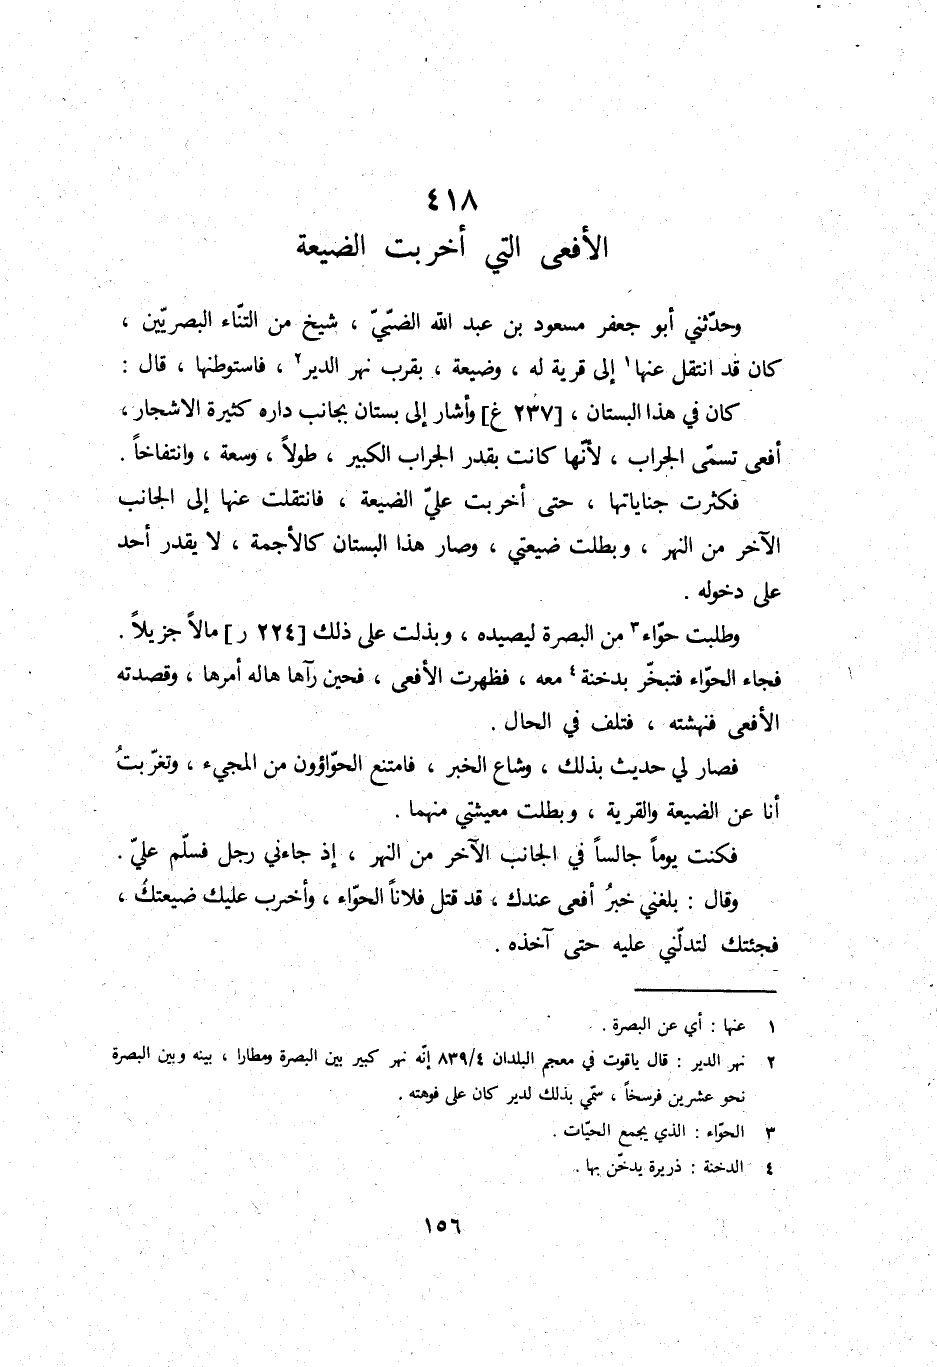 ٤١٨
الأفعى التي أخربت الضيعة
وحدّثني أبو جعفر مسعود بن عبد الله الضبّيّ ، شيخ من التنّاء البصريّين ،
كان قد انتقل عنها١ إلى قرية له ، وضيعة ، بقرب نهر الدير٢ ، فاستوطنها ، قال :
كان في هذا البستان ، [٢٣٧ غ] وأشار إلى بستان بجانب داره كثيرة الاشجار ،
أفعى تسمّى الجراب ، لأنّها كانت بقدر الجراب الكبير ، طولاً ، وسعة ، وانتفاخاً .
فكثرت جناياتها ، حتى أخربت عليّ الضيعة ، فانتقلت عنها إلى الجانب
الآخر من النهر ، وبطلت ضيعتي ، وصار هذا البستان كالأجمة ، لا يقدر أحد
على دخوله .
وطلبت حوّاء٣ من البصرة ليصيده ، وبذلت على ذلك [٢٢٤ ر] مالاً جزيلاً .
فجاء الحوّاء فتبخّر بدخنة٤ معه ، فظهرت الأفعى ، فحين رآها هاله أمرها ، وقصدته
الأفعى فنهشته ، فتلف في الحال .
فصار لي حديث بذلك ، وشاع الخبر ، فامتنع الحوّاؤون من المجيء ، وتغرّبتُ
أنا عن الضيعة والقرية ، وبطلت معيشتي منهما .
فكنت يوماً جالساً في الجانب الآخر من النهر ، إذ جاءني رجل فسلّم عليّ .
وقال : بلغني خبرُ أفعى عندك ، قد قتل فلاناً الحوّاء ، وأخرب عليك ضيعتكُ ،
فجئتك لتدلّني عليه حتى آخذه .
١ عنها : أي عن البصرة .
٢ نهر الدير : قال ياقوت في معجم البلدان ٨٣٩/٤ إنّه نهر كبير بين البصرة ومطارا ، بينه وبين البصرة
نحو عشرين فرسخاً ، سمّي بذلك لدير كان على فوهته .
٣ الحوّاء : الذي يجمع الحيّات .
٤ الدخنة : ذريرة يدخّن بها .
١٥٦